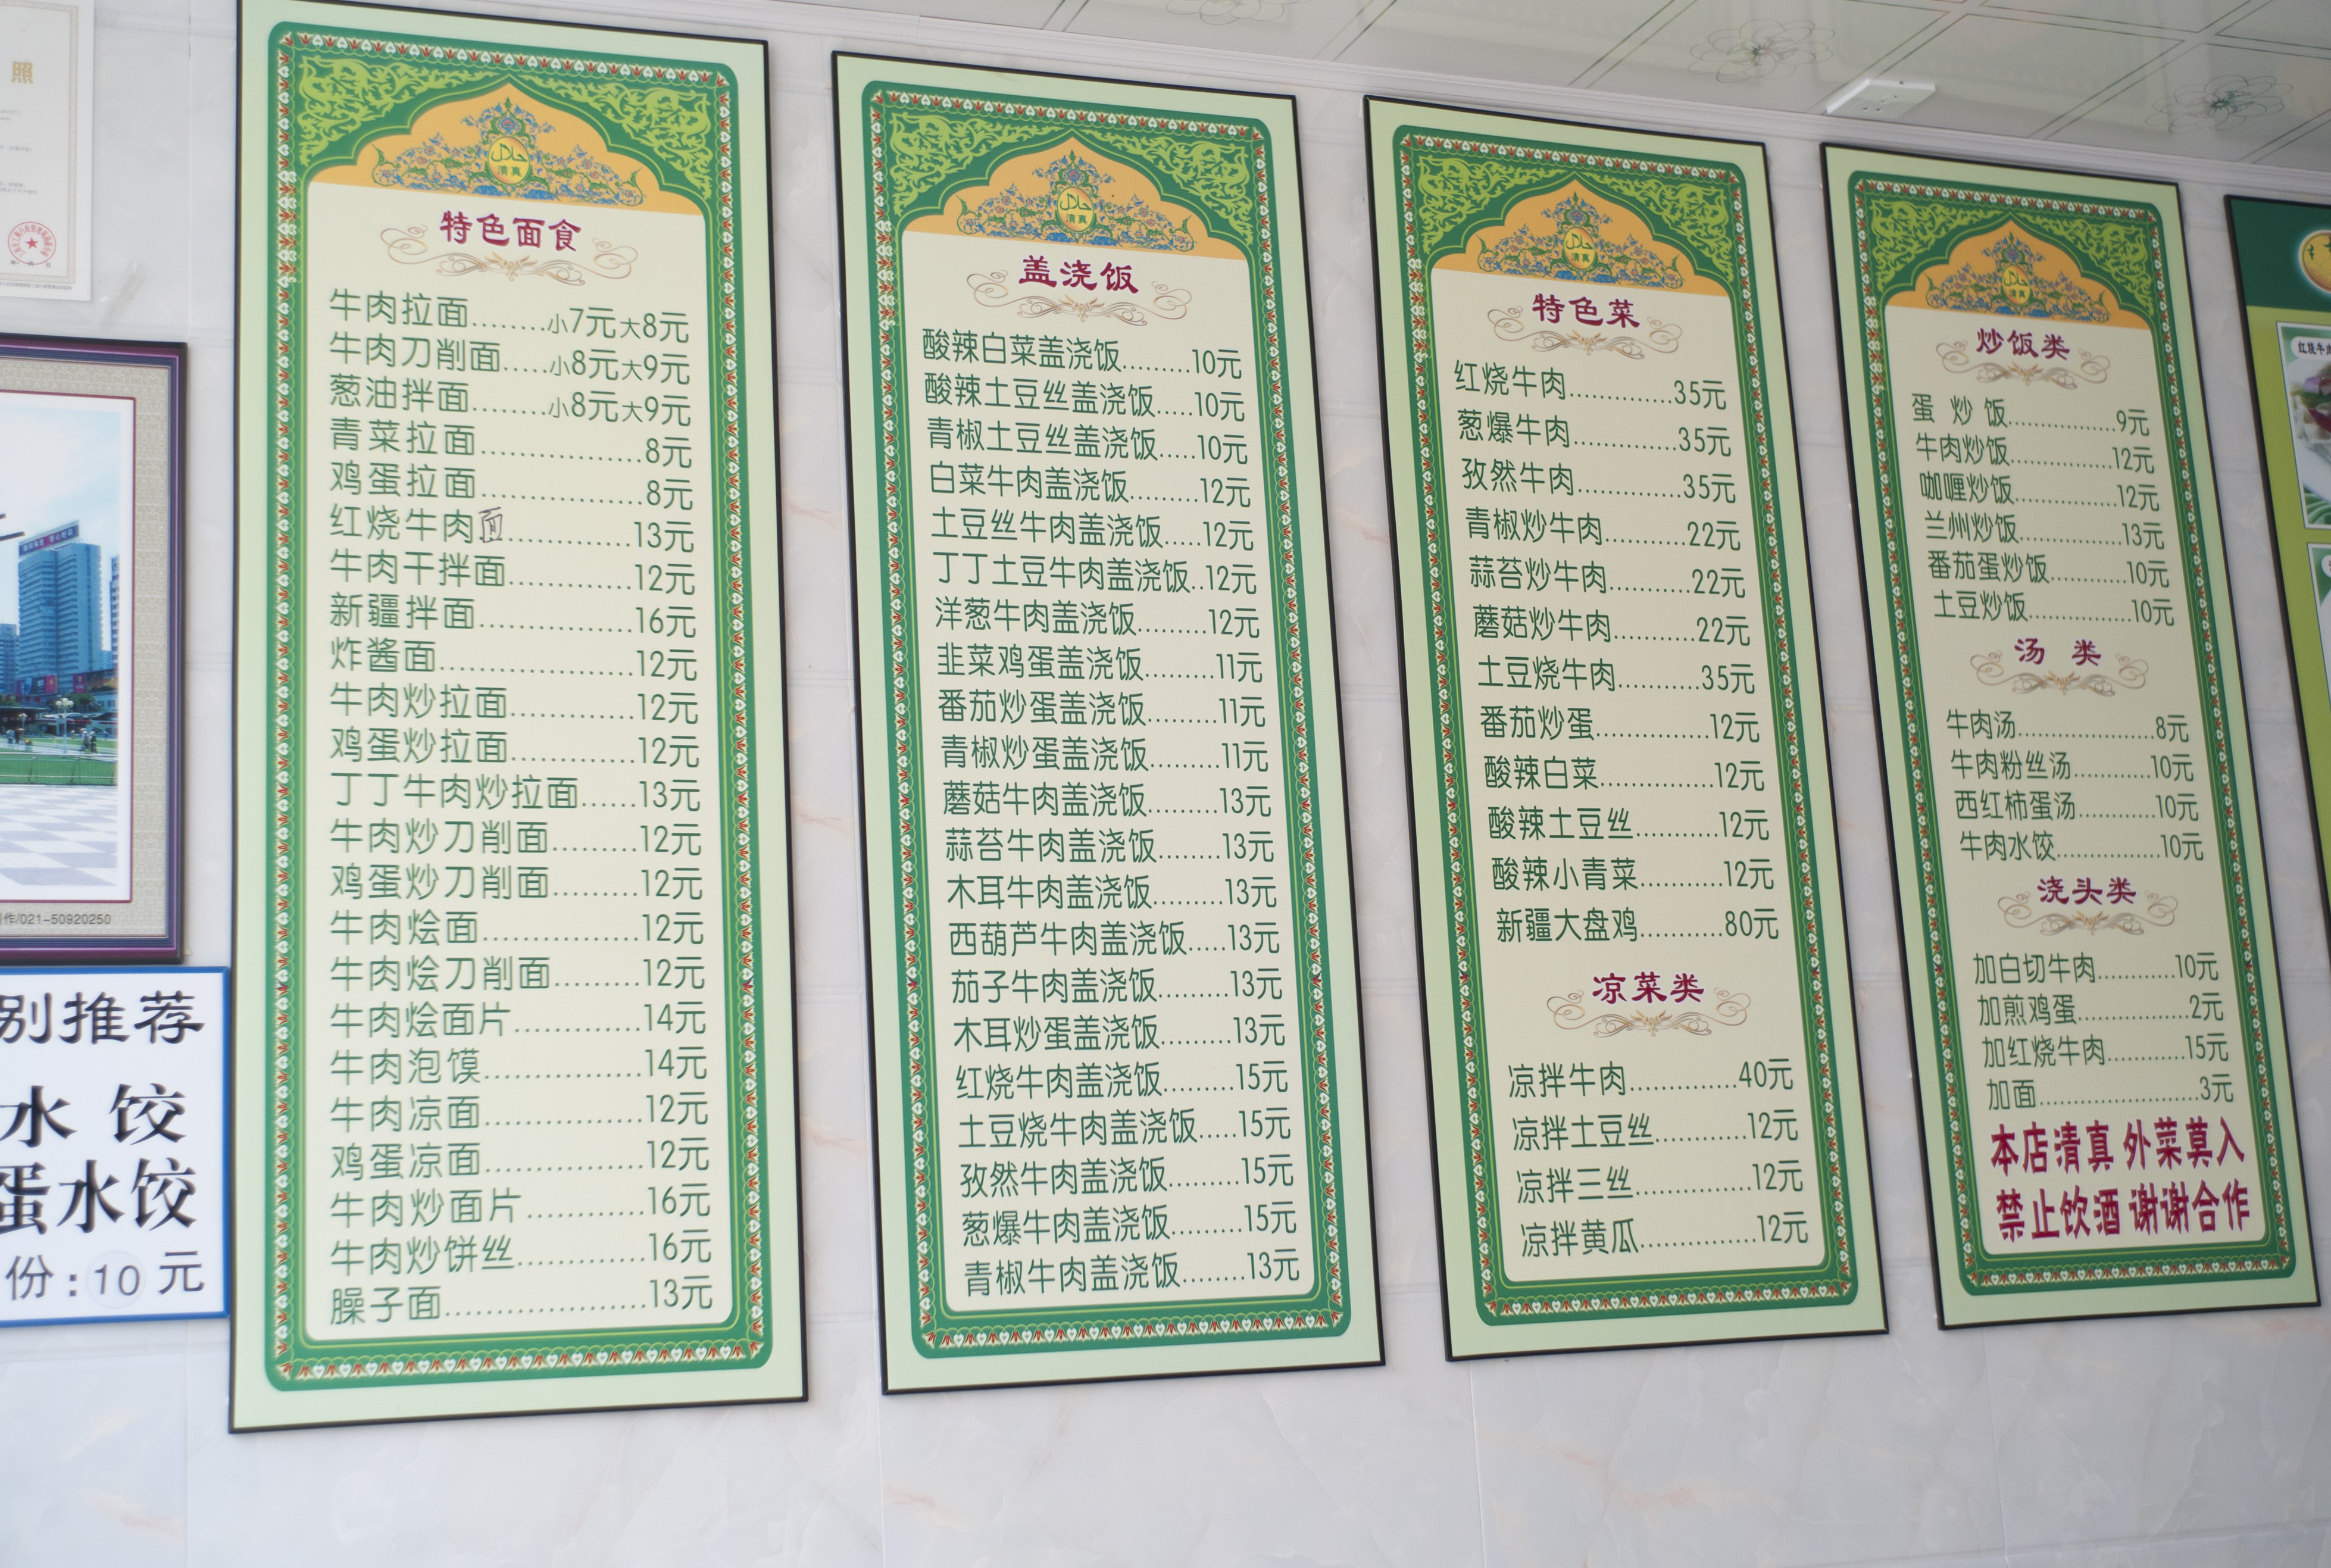 照
作/021-50920250
别推荐
水 饺
蛋水饺
份:10元
حلال
清真
特色面食
牛肉拉面........小7元大8元
牛肉刀削面.....小8元大9元
葱油拌面........小8元大9元
青菜拉面................8元
鸡蛋拉面................8元
红烧牛肉面.............13元
牛肉干拌面.............12元
新疆拌面................16元
炸酱面....................12元
牛肉炒拉面.............12元
鸡蛋炒拉面.............12元
丁丁牛肉炒拉面......13元
牛肉炒刀削面.........12元
鸡蛋炒刀削面.........12元
牛肉烩面................12元
牛肉烩刀削面.........12元
牛肉烩面片.............14元
牛肉泡馍................14元
牛肉凉面................12元
鸡蛋凉面................12元
牛肉炒面片............16元
牛肉炒饼丝.............16元
臊子面....................13元
حلال
清真
盖浇饭
酸辣白菜盖浇饭.........10元
酸辣土豆丝盖浇饭.....10元
青椒土豆丝盖浇饭.....10元
白菜牛肉盖浇饭.........12元
土豆丝牛肉盖浇饭.....12元
丁丁土豆牛肉盖浇饭..12元
洋葱牛肉盖浇饭.........12元
韭菜鸡蛋盖浇饭.........11元
番茄炒蛋盖浇饭.........11元
青椒炒蛋盖浇饭.........11元
蘑菇牛肉盖浇饭.........13元
蒜苔牛肉盖浇饭........13元
木耳牛肉盖浇饭.........13元
西葫芦牛肉盖浇饭.....13元
茄子牛肉盖浇饭.........13元
木耳炒蛋盖浇饭.........13元
红烧牛肉盖浇饭.........15元
土豆烧牛肉盖浇饭.....15元
孜然牛肉盖浇饭.........15元
葱爆牛肉盖浇饭.........15元
青椒牛肉盖浇饭........13元
حلال
清真
特色菜
红烧牛肉..............35元
葱爆牛肉..............35元
孜然牛肉..............35元
青椒炒牛肉...........22元
蒜苔炒牛肉...........22元
蘑菇炒牛肉...........22元
土豆烧牛肉...........35元
番茄炒蛋..............12元
酸辣白菜..............12元
酸辣土豆丝...........12元
酸辣小青菜...........12元
新疆大盘鸡...........80元
凉菜类
凉拌牛肉..............40元
凉拌土豆丝............12元
凉拌三丝...............12元
凉拌黄瓜...............12元
حلال
清真
炒饭类
蛋 炒 饭................9元
牛肉炒饭...............12元
咖喱炒饭...............12元
兰州炒饭...............13元
番茄蛋炒饭...........10元
土豆炒饭...............10元
汤 类
牛肉汤.....................8元
牛肉粉丝汤............10元
西红柿蛋汤............10元
牛肉水饺................10元
浇头类
加白切牛肉............10元
加煎鸡蛋................2元
加红烧牛肉............15元
加面........................3元
本店清真 外菜莫入
禁止饮酒 谢谢合作
红烧牛